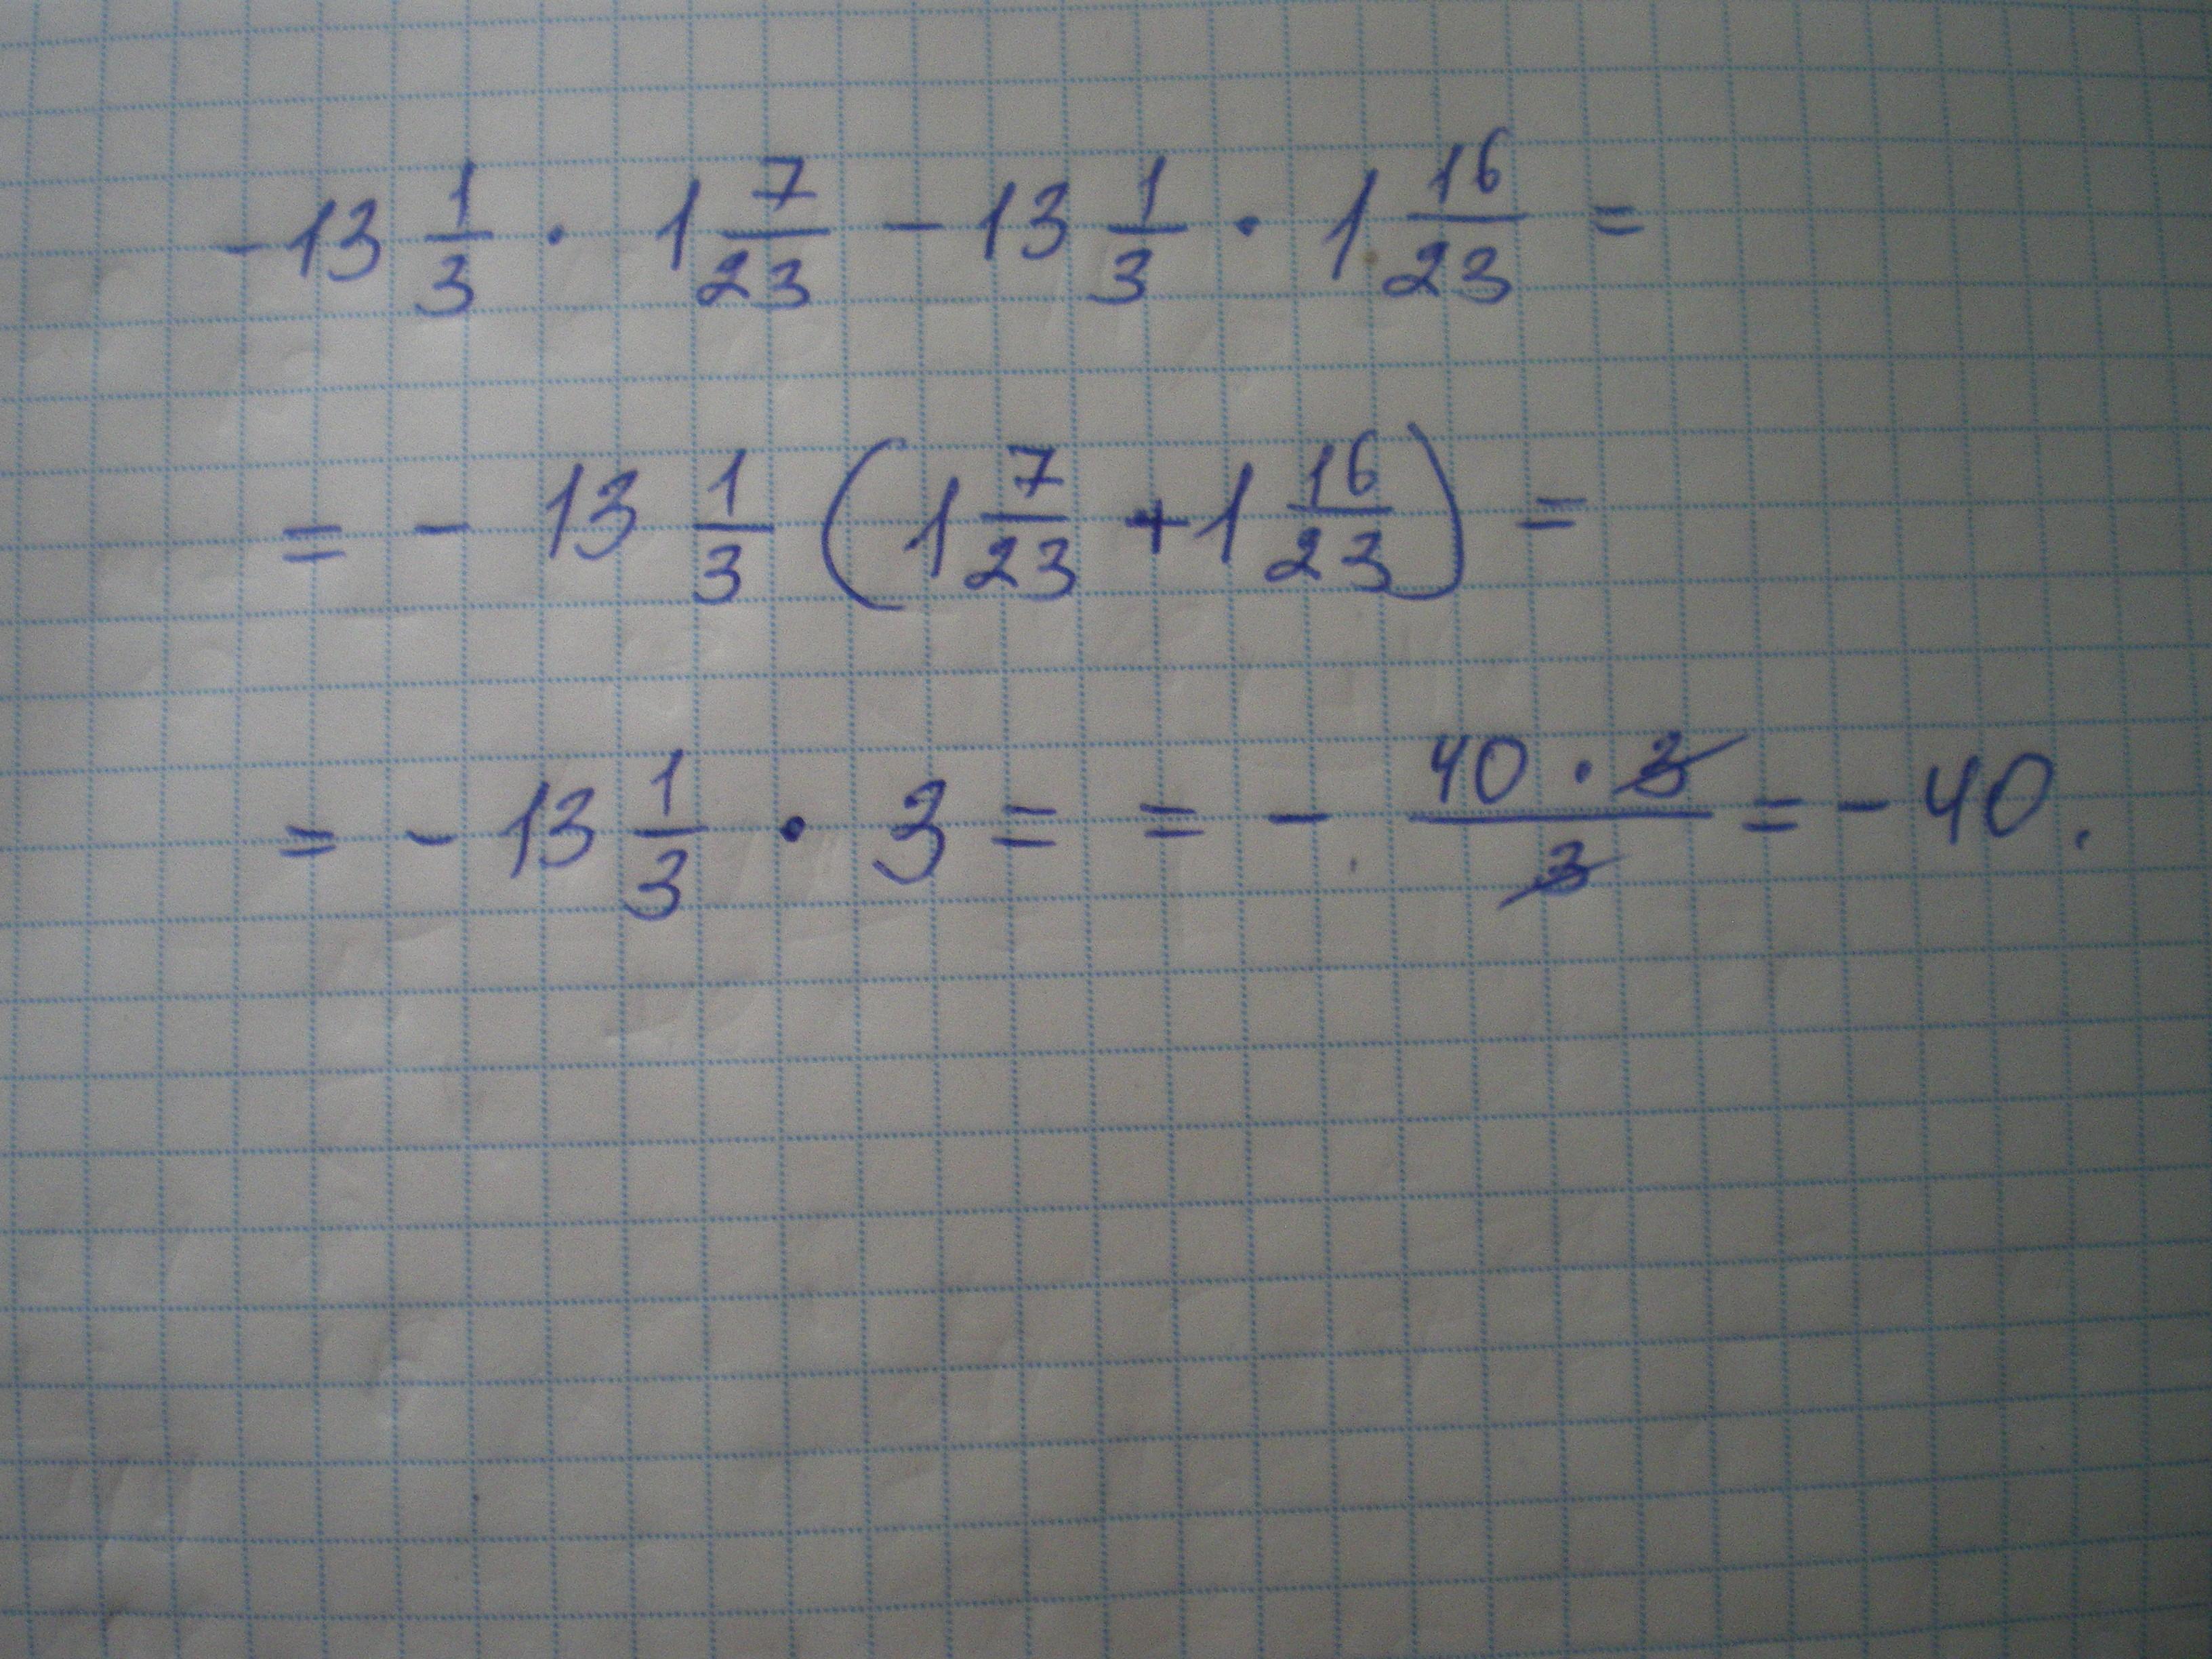 -13 1/3 · 1 7/23 - 13 1/3 · 1 16/23 =
= - 13 1/3 (1 7/23 + 1 16/23) =
= - 13 1/3 · 3 = = - 40 · 3/3 = - 40.